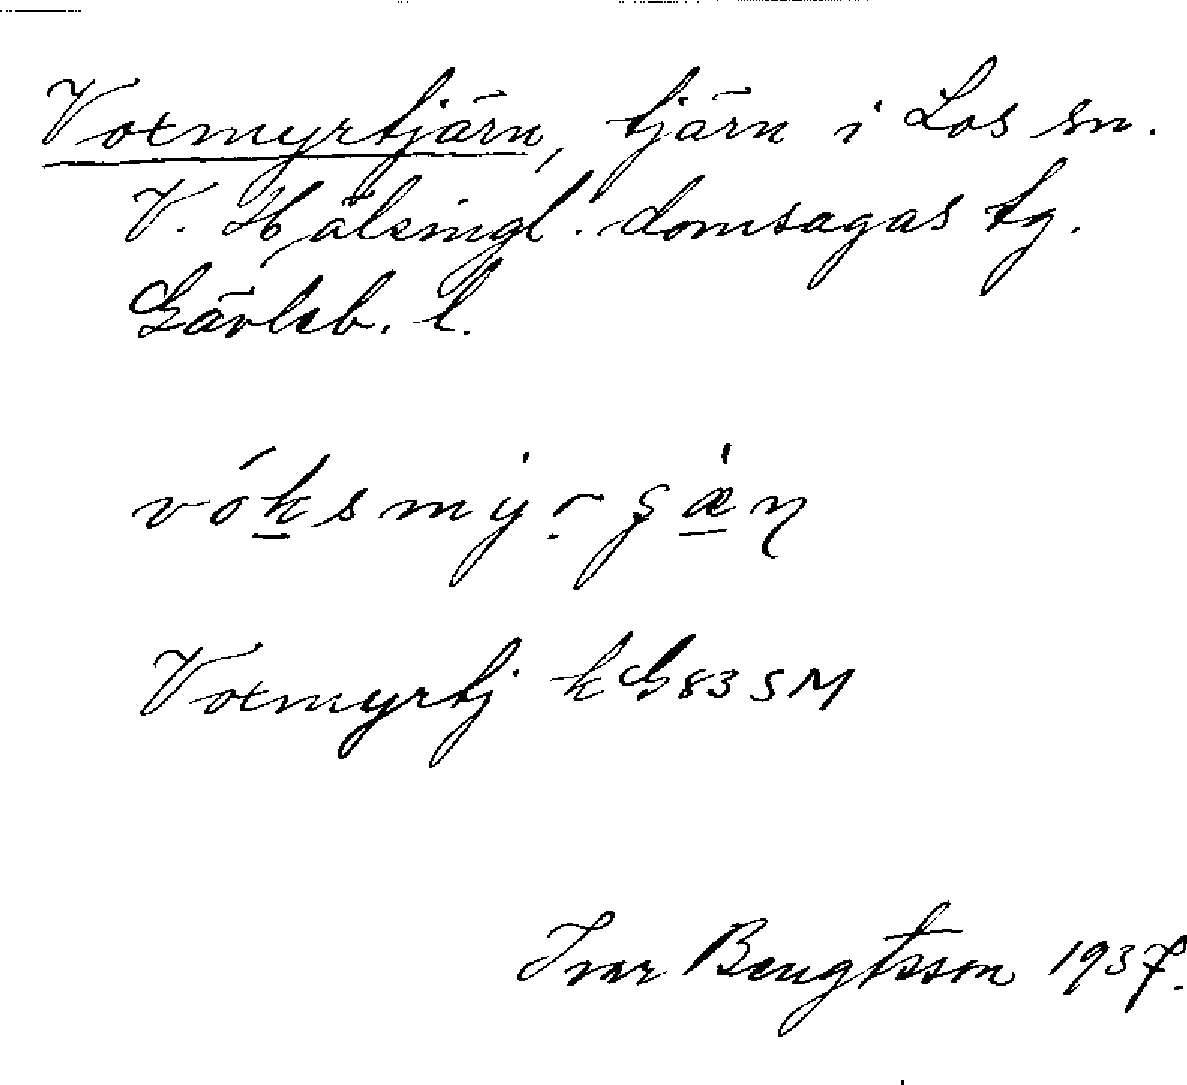 Voxmyrtjärn, tjärn i Los sn.
V. Hälsingl. domsagas tg.
Gävleb. l.
Voxmyrtj kG83SM
Ivar Bengtsson 1937.